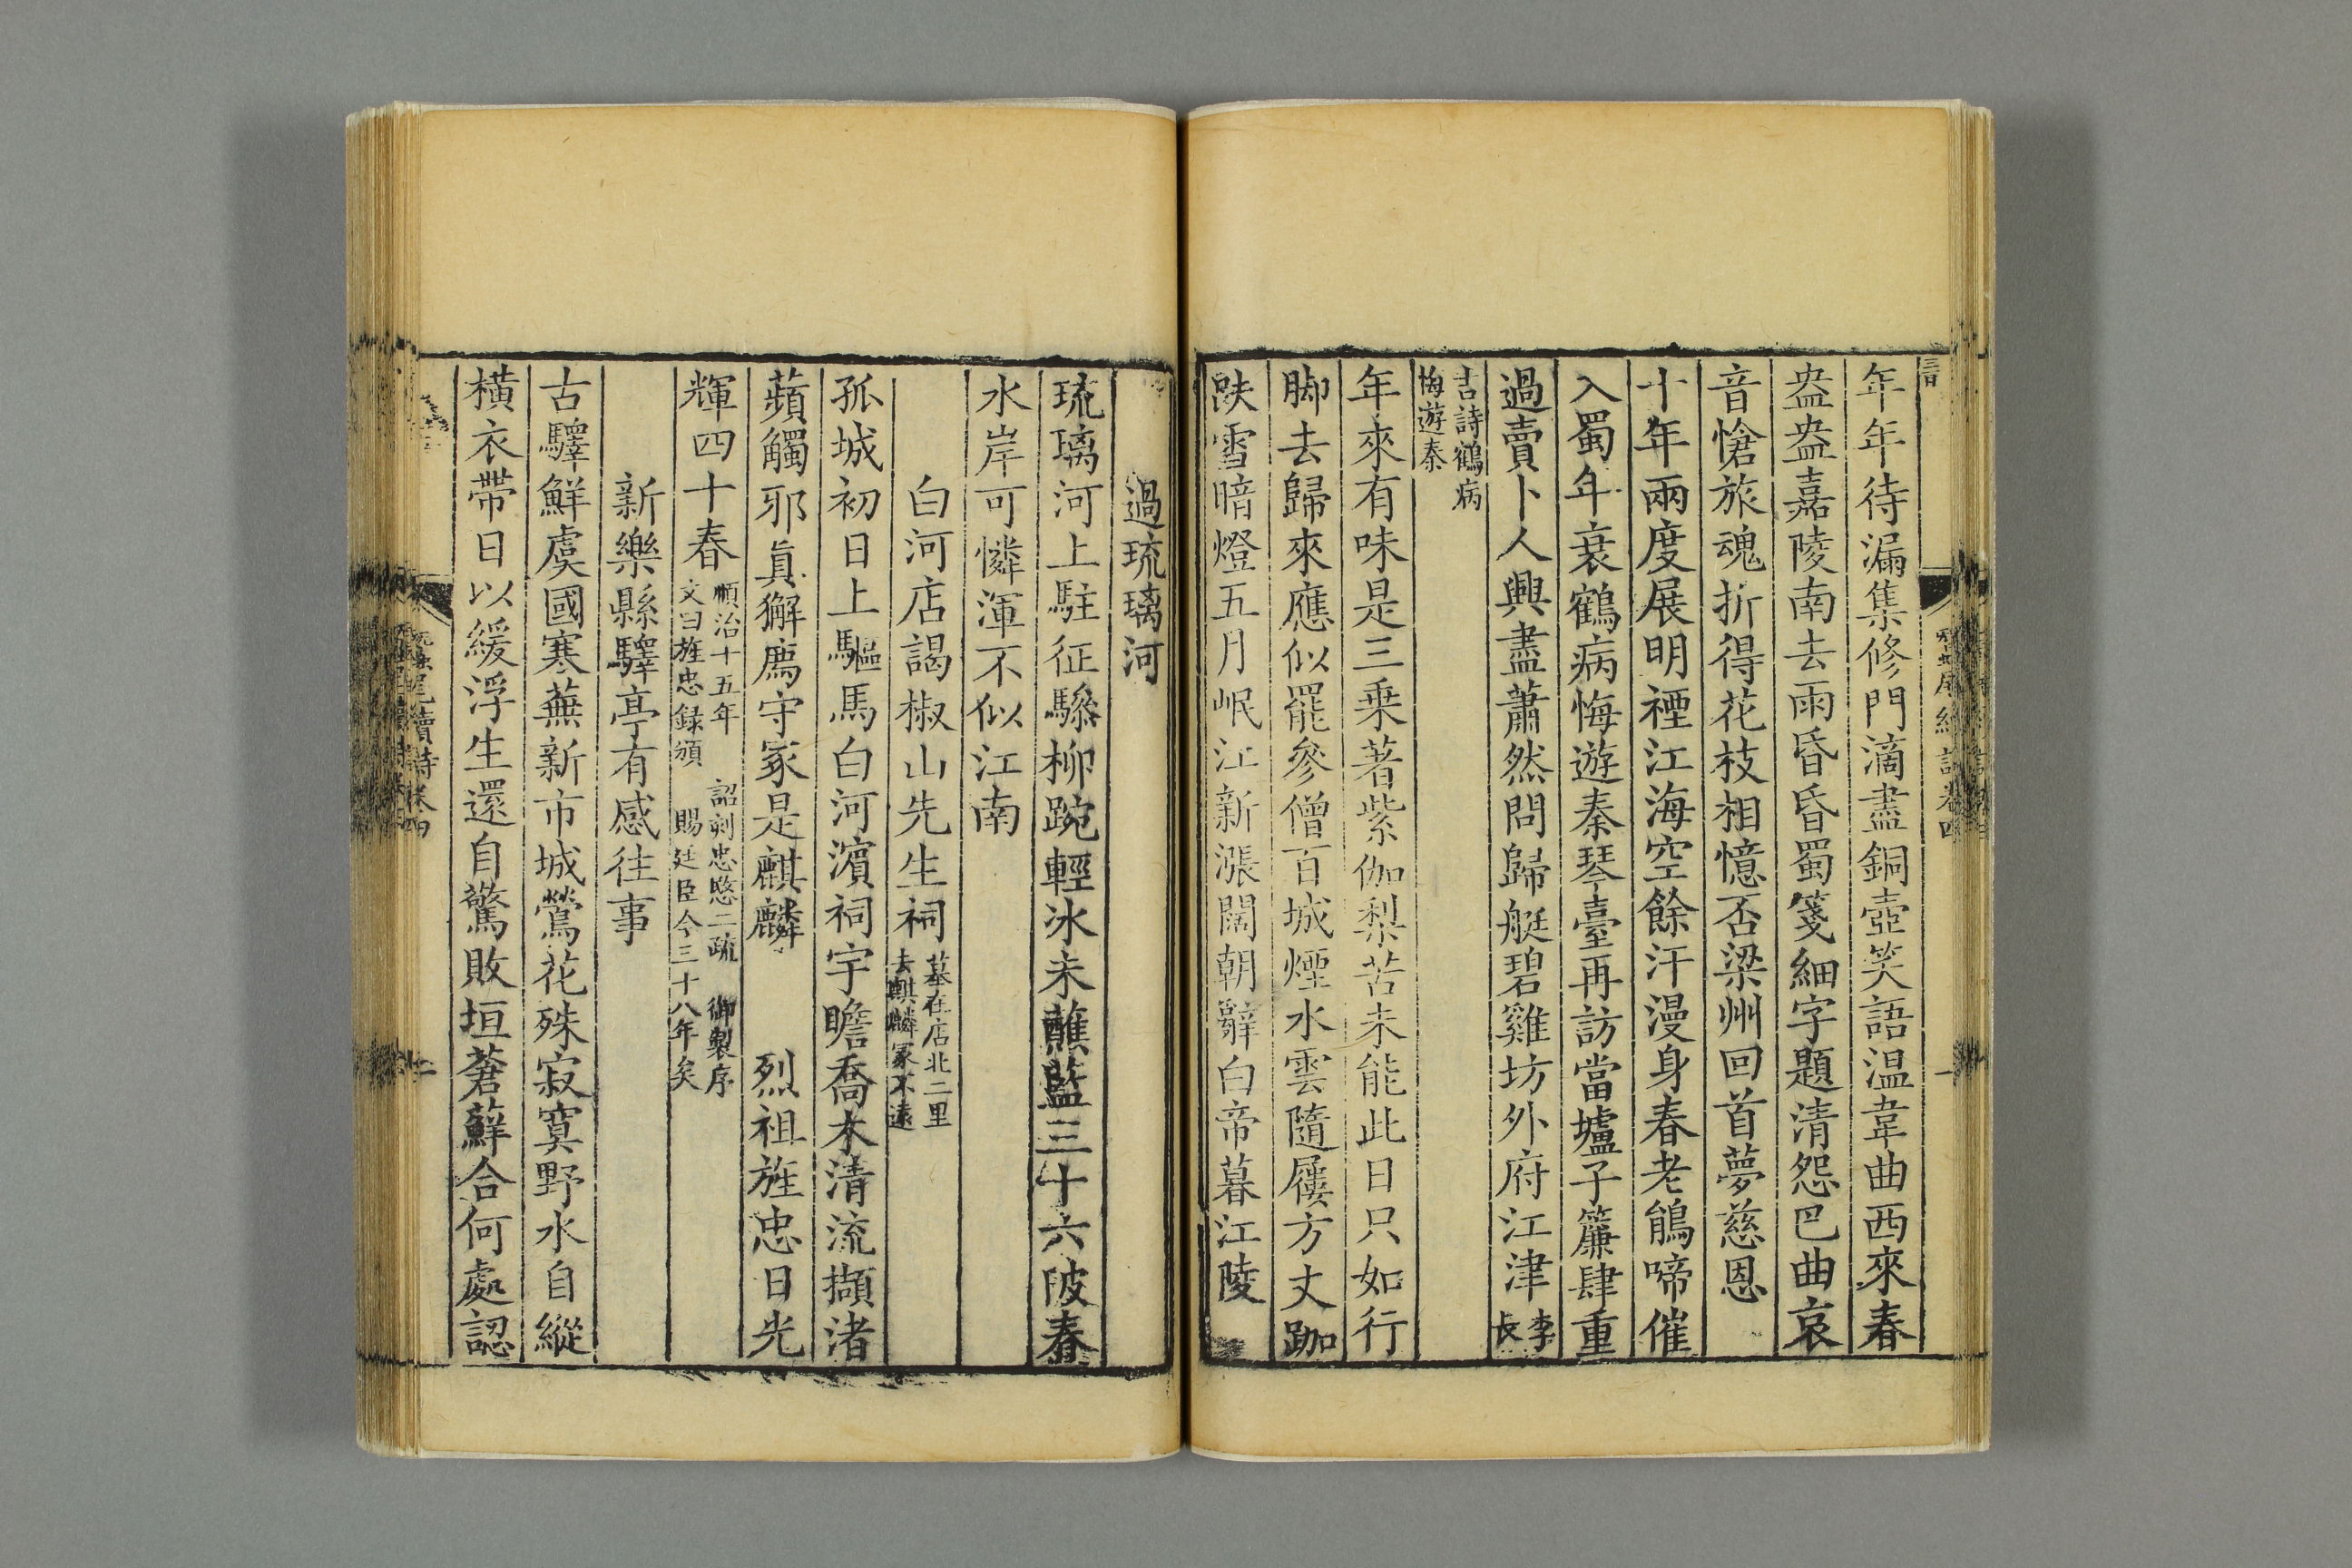 年年待漏集修門滴盡銅壺笑語温韋曲西來春
盎盎嘉陵南去雨昏昏蜀箋細字題清怨巴曲哀
音愴旅魂折得花枝相憶否梁州回首夢慈恩
十年兩度展明禋江海空餘汗漫身春老鵑啼催
入蜀年衰鶴病悔遊秦琴臺再訪當壚子簾肆重
過賣卜人興盡蕭然問歸艇碧雞坊外府江津李長
吉詩鶴病
悔遊秦
年來有味是三乗著紫伽梨苦未能此日只如行
脚去歸來應似罷參僧百城煙水雲隨屨方丈跏
趺雪暗燈五月岷江新漲闊朝辭白帝暮江陵
過琉璃河
琉璃河上駐征驂柳踠輕冰未蘸藍三十六陂春
水岸可憐渾不似江南
白河店謁椒山先生祠墓在店北二里
去麒麟冢不遠
孤城初日上驅馬白河濵祠宇瞻喬木清流擷渚
蘋觸邪真獬廌守冢是麒麟　烈祖旌忠日光
輝四十春順治十五年　詔刻忠愍二疏　御製序
文曰旌忠録頒　賜廷臣今三十八年矣
新樂縣驛亭有感往事
古驛鮮虞國寒蕪新市城鶯花殊寂寞野水自縱
橫衣帶日以緩浮生還自驚敗垣蒼蘚合何處認
尾續詩卷四